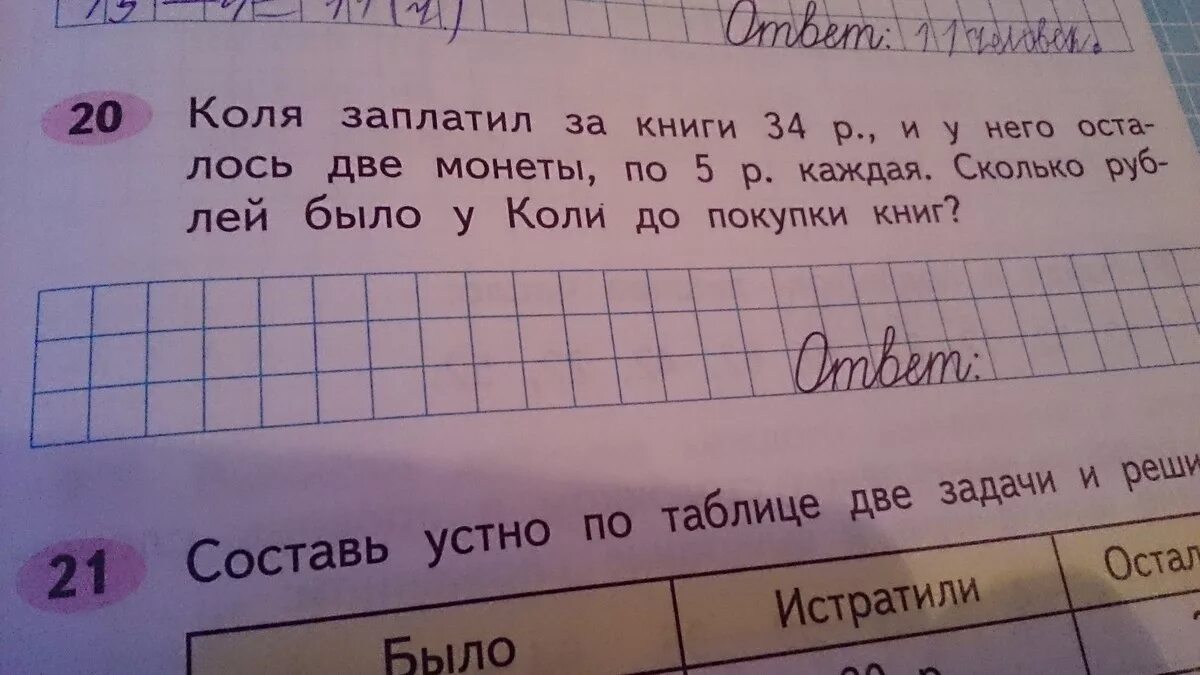 15 – 4 = 11 (ч.)
Ответ: 11 человек.
20 Коля заплатил за книги 34 р., и у него оста-
лось две монеты, по 5 р. каждая. Сколько руб-
лей было у Коли до покупки книг?
Ответ:
21 Составь устно по таблице две задачи и реши
Было Истратили Остал
р